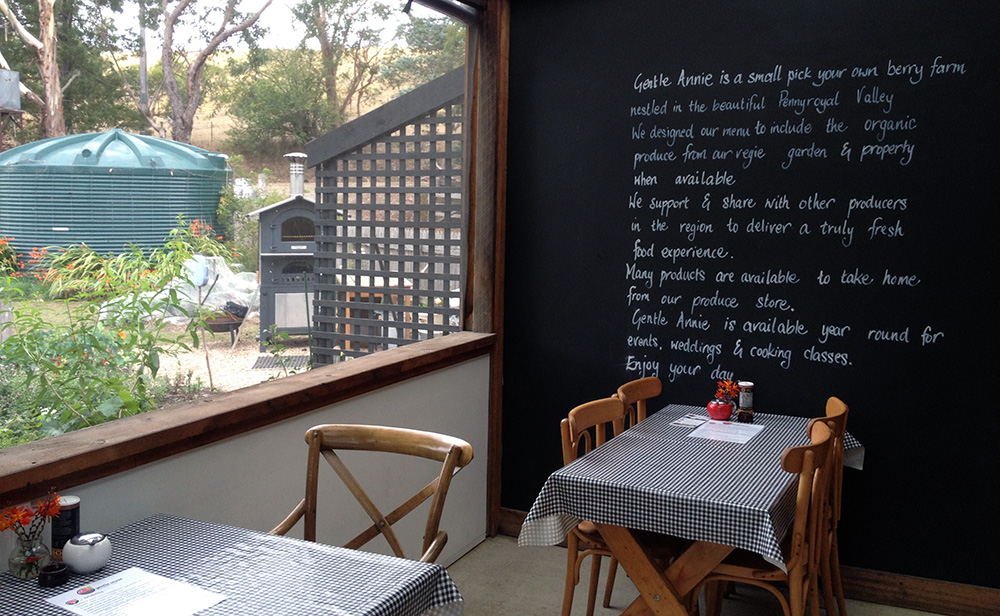 Gentle Annie is a small pick your own berry farm
nestled in the beautiful Pennyroyal Valley
We designed our menu to include the organic
produce from our vegie garden & property
when available
We support & share with other producers
in the region to deliver a truly fresh
food experience.
Many products are available to take home
from our produce store.
Gentle Annie is available year round for
events, weddings & cooking classes.
Enjoy your day